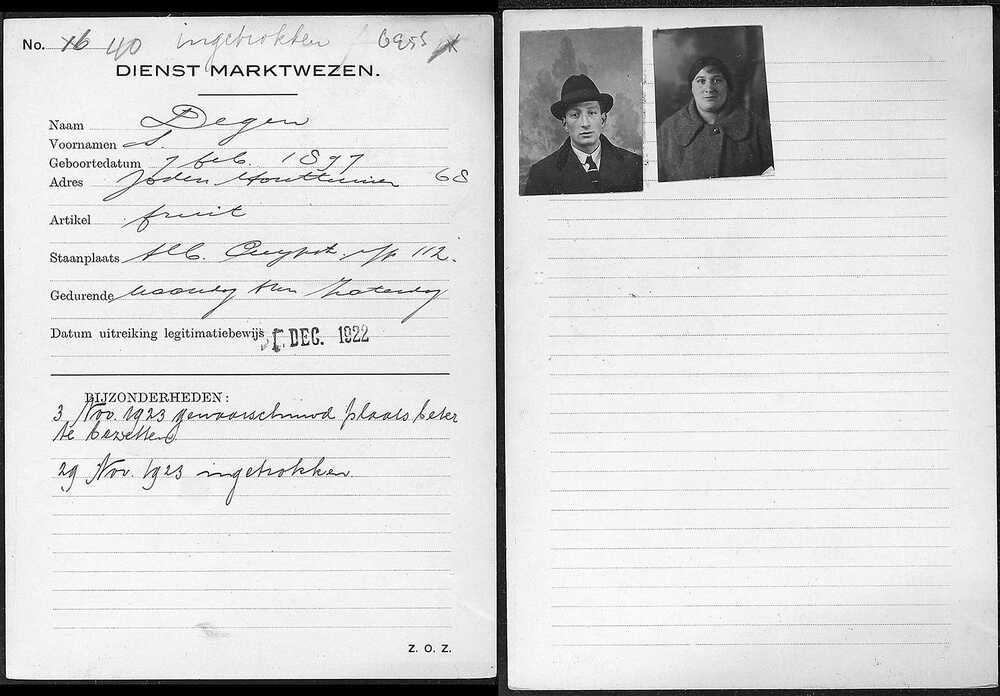 No. 16 40 ingetrokken 6955
DIENST MARKTWEZEN.
Naam Degen
Voornamen S.
Geboortedatum 7 feb. 1897
Adres Joden Houttuinen 68
Artikel fruit
Staanplaats Alb. Cuypstr. 112.
Gedurende Maandag t/m Zaterdag
Datum uitreiking legitimatiebewijs DEC. 1922
BIJZONDERHEDEN:
3 Nov. 1923 gewaarschuwd plaats beter
te bezetten
29 Nov. 1923 ingetrokken.
Z. O. Z.